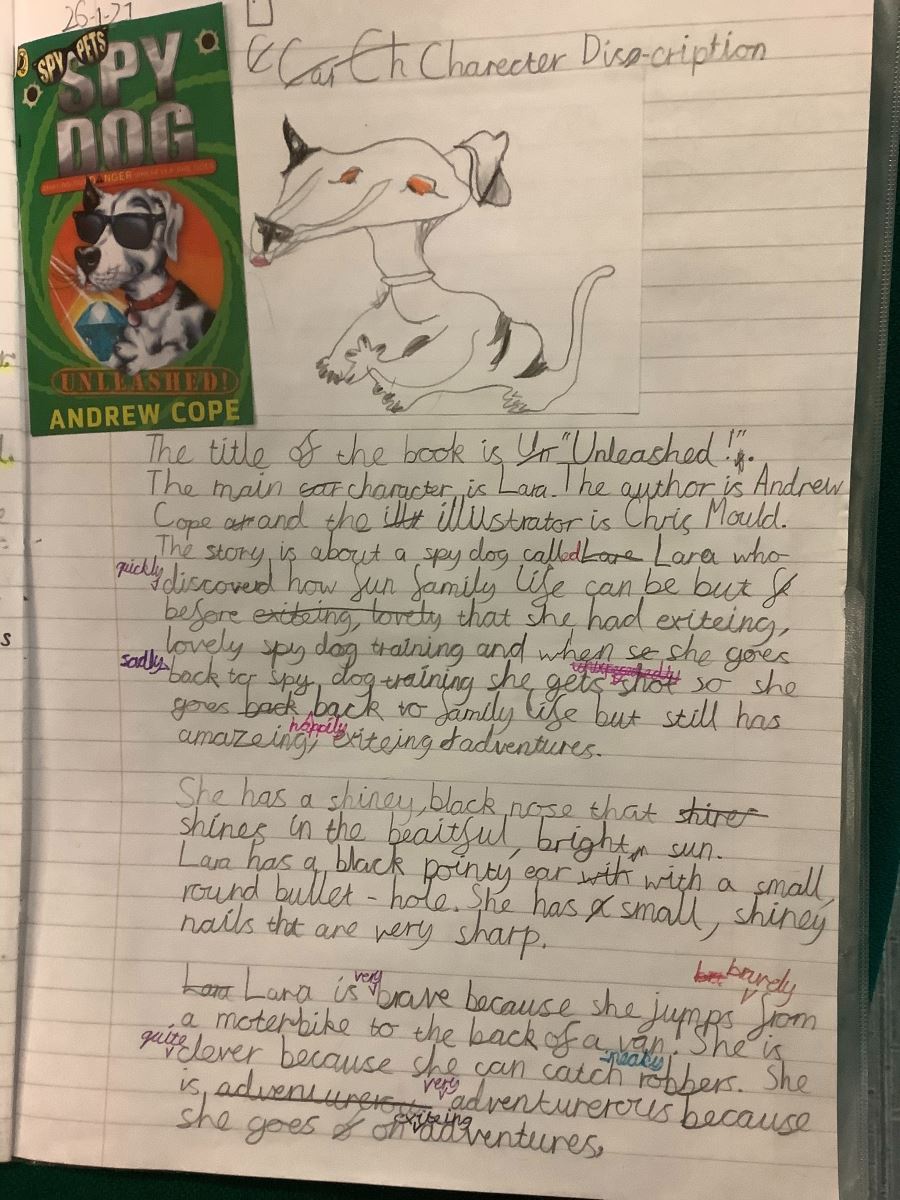 26-1-21
SPY PETS
SPY
DOG
DANGER
UNLEASHED!
ANDREW COPE
Car Ch Charecter Dis-cription
The title of the book is Un "Unleashed!".
The main car character is Lara. The author is Andrew
Cope ar and the illt illustrator is Chris Mould.
The story is about a spy dog called Lara Lara who
quickly
discoverd how fun family life can be but
before exiteing, lovely that she had exiteing,
lovely spy dog training and when se she goes
sadly
back tor spy dog training she gets shot so she
goes back back to family life but still has
happily
amazeing, exiteing adventures.
She has a shiney, black nose that shines
shines in the beaitful, bright sun.
Lara has a black pointy ear with with a small,
round bullet-hole. She has small, shiney
nails tht are very sharp.
bravely
very
Lara Lara is brave because she jumps from
a moterbike to the back of a van. She is
quite
clever because she can catch robbers. She
sneaky
very
is adventurerous adventurerous because
exiteing
she goes on adventures.